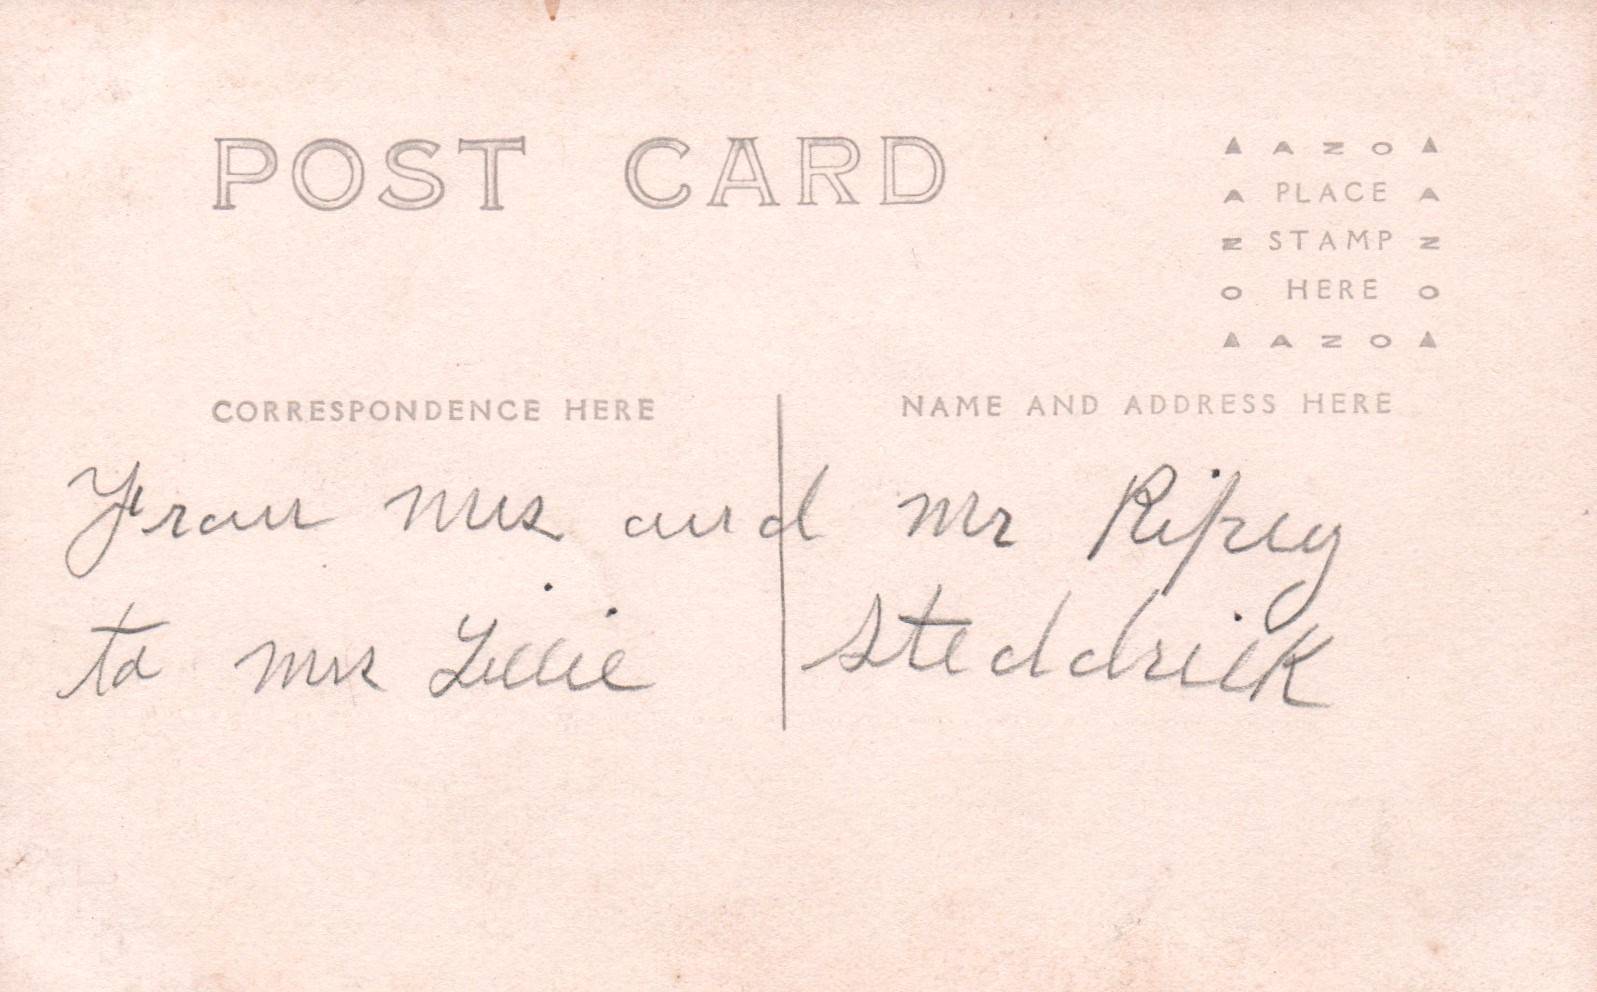 POST CARD
▲ A Z O ▲
A PLACE A
Z STAMP Z
O HERE O
▲ A Z O ▲
CORRESPONDENCE HERE
NAME AND ADDRESS HERE
From Mrs and Mr Ripey
to Mrs Lillie Steddrick